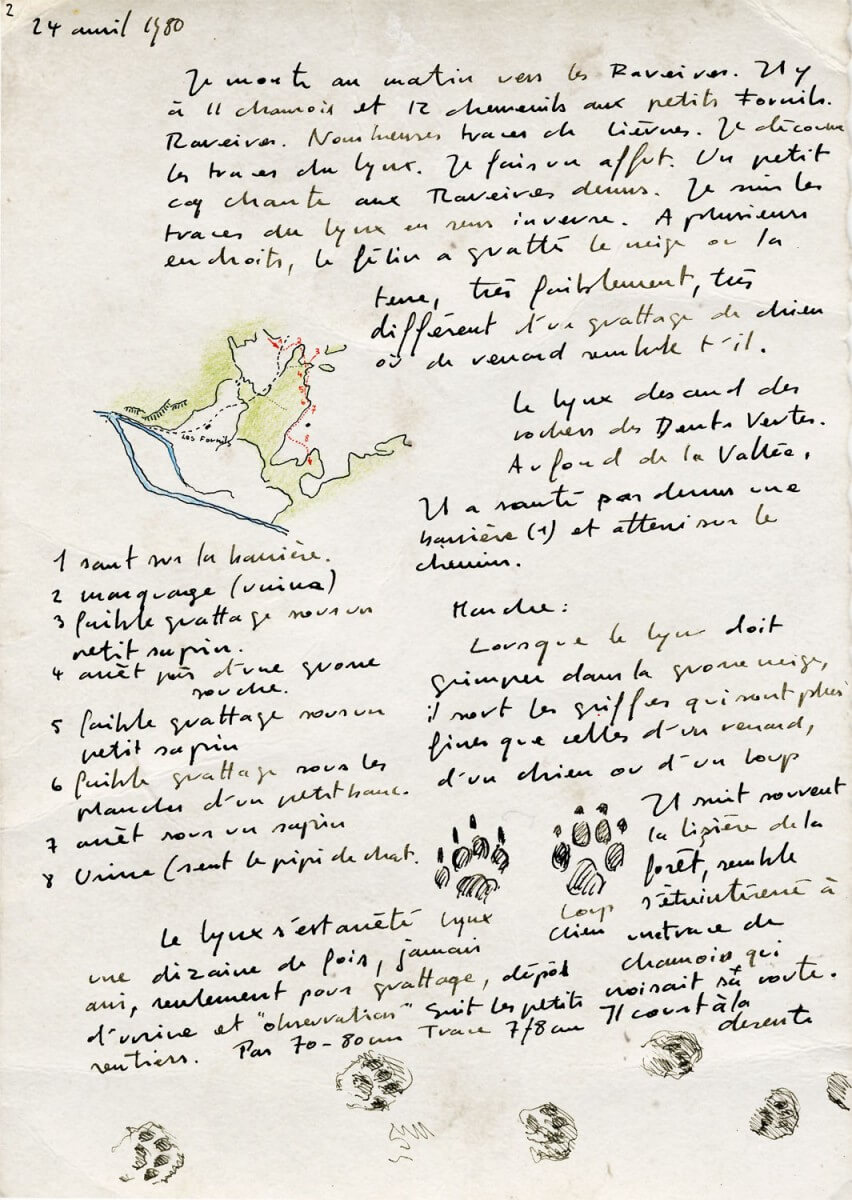 2
24 avril 1980
Je monte au matin vers les Raveires. Il y
à 11 chamois et 12 chemenits aux petits Fornils.
Raveires. Nombreuses traces de lièvres. Je découvre
les traces du lynx. Je fais un affut. Un petit
coq chante aux Raveires dessus. Je suis les
traces du lynx en sens inverse. A plusieurs
endroits, le félin a gratté la neige ou la
terre, très faiblement, très
différent d'un grattage de chien
où de renard semble t-il.
Le lynx descend des
rochers des Dents Vertes.
Au fond de la Vallée,
Il a sauté par dessus une
barrière (1) et atterri sur le
chemin.
Les Fornils
1 2 3 4 5 6 7 8
1 saut sur la barrière.
2 marquage (urina)
3 faible grattage sous un
petit sapin.
4 arrêt près d'une grosse
souche.
5 faible grattage sous un
petit sapin
6 faible grattage sous les
planches d'un petit banc.
7 arrêt sous un sapin
8 Urine (sent le pipi de chat.
Marche :
Lorsque le lynx doit
grimper dans la grosse neige,
il sort les griffes qui sont plus
fines que celles d'un renard,
d'un chien ou d'un loup
Il suit souvent
la lisière de la
forêt, semble
s'être intéressé à
une trace de
chamois qui
croisait sa route.
lynx
loup
chien
Le lynx s'est arrêté
une dizaine de fois, jamais
assi, seulement pour grattage, dépôt
d'urine et "observation" Suit les petits
sentiers. Pas 70-80cm Trace 7/8cm Il court à la
descente